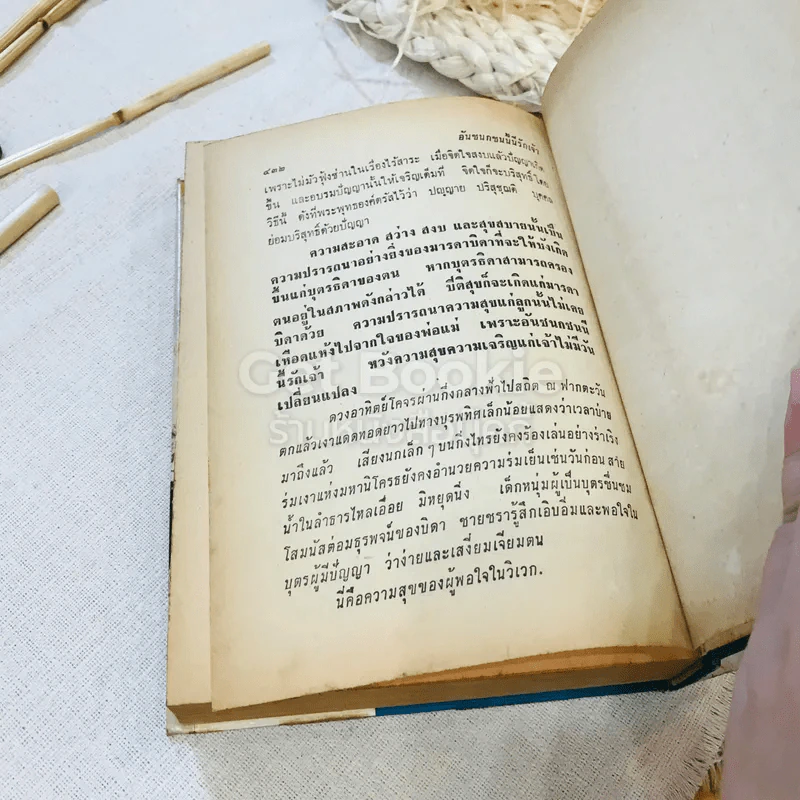 อันชนกชนนี้นี้รักเจ้า
๔๓๒
เพราะไม่มัวฟุ้งซ่านในเรื่องไร้สาระ เมื่อจิตใจสงบแล้วปัญญาเกิด
ขึ้น และอบรมปัญญานั้นให้เจริญเต็มที่ จิตใจก็จะบริสุทธิ์ได้โดย
วิธีนี้ ดังที่พระพุทธองค์ตรัสไว้ว่า ปญฺญาย ปริสุชฺฌติ บุคคล
ย่อมบริสุทธิ์ด้วยปัญญา
ความสะอาด สว่าง สงบ และสุขสบายนั้นเป็น
ความปรารถนาอย่างยิ่งของมารดาบิดาที่จะให้บังเกิด
ขึ้นแก่บุตรธิดาของตน หากบุตรธิดาสามารถครอง
ตนอยู่ในสภาพดังกล่าวได้ ปีติสุขก็จะเกิดแก่มารดา
บิดาด้วย ความปรารถนาความสุขแก่ลูกนั้นไม่เคย
เหือดแห้งไปจากใจของพ่อแม่ เพราะอันชนกชนนี
นี้รักเจ้า หวังความสุขความเจริญแก่เจ้าไม่มีวัน
เปลี่ยนแปลง
ดวงอาทิตย์โคจรผ่านกึ่งกลางฟ้าไปสถิต ณ ฟากตะวัน
ตกแล้วเงาแดดทอดยาวไปทางบุรพทิศเล็กน้อยแสดงว่าเวลาบ่าย
มาถึงแล้ว เสียงนกเล็ก ๆ บนกิ่งไทรยังคงร้องเล่นอย่างร่าเริง
ร่มเงาแห่งมหานิโครธยังคงอำนวยความร่มเย็นเช่นวันก่อน สาย
น้ำในลำธารไหลเอื่อย มิหยุดนิ่ง เด็กหนุ่มผู้เป็นบุตรชื่นชม
โสมนัสต่อมธุรพจน์ของบิดา ชายชรารู้สึกเอิบอิ่มและพอใจใน
บุตรผู้มีปัญญา ว่าง่ายและเสงี่ยมเจียมตน
นี่คือความสุขของผู้พอใจในวิเวก.
Get Bookie
ร้านหนังสือบุคกี้